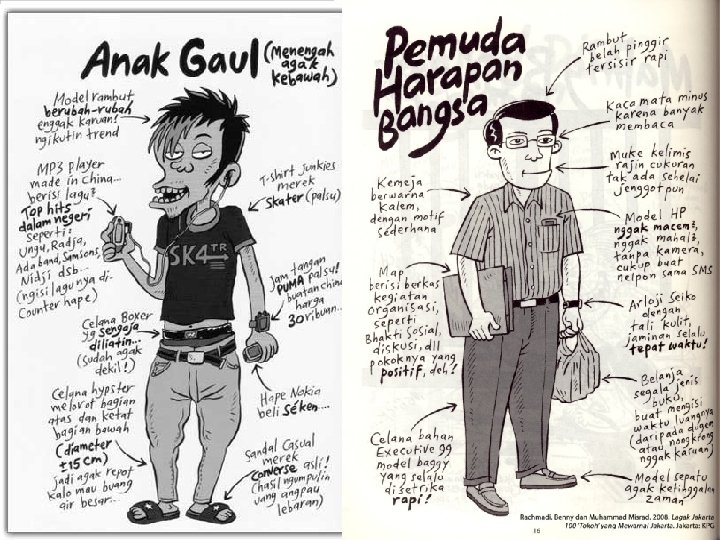 Anak Gaul
(Menengah
agak
kebawah)
Model rambut
berubah-rubah
enggak karuan!
ngikutin trend
MP3 player
made in China...
berisi lagu²
Top hits
dalam negeri
seperti:
Ungu, Radja,
Ada band, Samsons,
Nidji dsb...
(ngisi lagu nya di-
Counter hape)
T-shirt junkies
merek
Skater (palsu)
SK4TR
Jam tangan
PUMA palsu!
buatan china
harga
30 ribuan..
Celana Boxer
yg sengaja
diliatin...
(sudah agak
dekil!)
Celana hypster
melorot bagian
atas dan ketat
bagian bawah
(diameter
±15 cm)
jadi agak repot
kalo mau buang
air besar..
Hape Nokia
beli seken...
Sandal Casual
merek
Converse asli!
(hasil ngumpulin
uang angpau
lebaran)
Pemuda
Harapan
Bangsa
Rambut
belah pinggir
tersisir rapi
Kaca mata minus
karena banyak
membaca
Muke kelimis
rajin cukuran
tak ada sehelai
jenggot pun
Kemeja
berwarna
kalem,
dengan motif
sederhana
Model HP
nggak macem²,
nggak mahal²,
tanpa kamera,
cukup buat
nelpon sama SMS
Map
berisi berkas
kegiatan
organisasi,
seperti
Bhakti Sosial,
diskusi, dll
Pokoknya yang
positif, deh!
Arloji Seiko
dengan
tali kulit,
jaminan selalu
tepat waktu!
Belanja
segala jenis
buku,
buat mengisi
waktu luangnya
(daripada dugem
atau nongkrong
nggak karuan)
Celana bahan
Executive yg
model baggy
yang selalu
disetrika
rapi!
Model sepatu
agak ketinggalan
zaman
Rachmadi, Benny dan Muhammad Misrad. 2008. Lagak Jakarta
100 'Tokoh' yang Mewarnai Jakarta. Jakarta: KPG
16